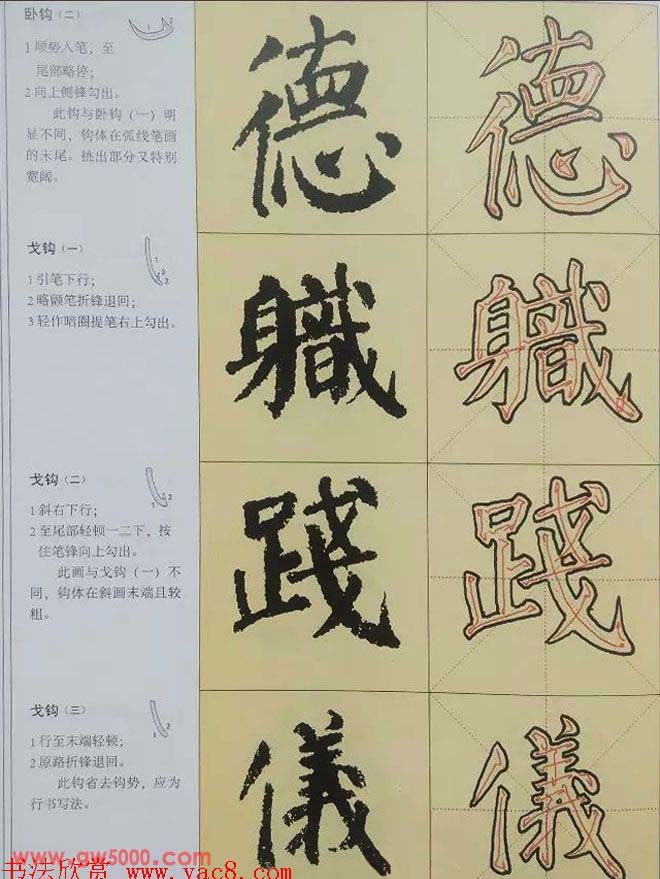 卧钩（二）
1 顺势入笔，至
尾部略停；
2 向上侧锋勾出。
此钩与卧钩（一）明
显不同，钩体在弧线笔画
的末尾。挑出部分又特别
宽阔。
徳 徳
戈钩（一）
1 引笔下行；
2 略颤笔折锋退回；
3 轻作暗圈提笔右上勾出。
軄 軄
戈钩（二）
1 斜右下行；
2 至尾部轻顿一二下，按
住笔锋向上勾出。
此画与戈钩（一）不
同，钩体在斜画末端且较
粗。
踐 踐
戈钩（三）
1 行至末端轻顿；
2 原路折锋退回。
此钩省去钩势，应为
行书写法。
儀 儀
www.gw5000.com
书法欣赏 www.yac8.com